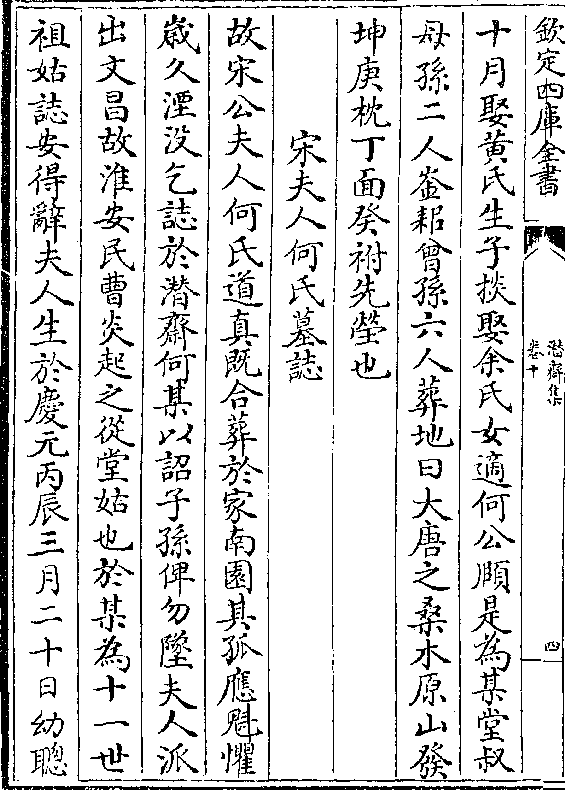 欽定四庫全書
潛齋集
卷十
四
十月娶黄氏生子掞娶余氏女適何公頤是為某堂叔
母孫二人崟耜曾孫六人葬地曰大唐之桑木原山發
坤庚枕丁面癸祔先塋也
宋夫人何氏墓誌
故宋公夫人何氏道真既合葬於家南園其孤應魁懼
嵗久湮没乞誌於潜齋何某以詔子孫俾勿墜夫人派
出文昌故淮安民曹炎起之從堂姑也於某為十一世
祖姑誌安得辭夫人生於慶元丙辰三月二十日幼聰